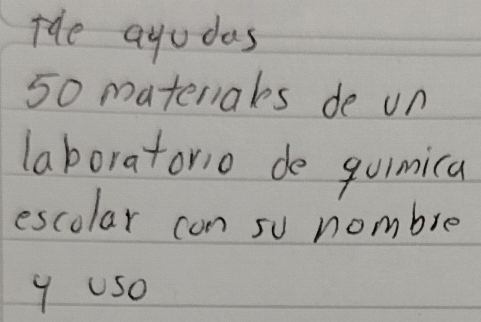 Me ayudas
50 materiales de un
laboratorio de quimica
escolar con su nombre
y uso